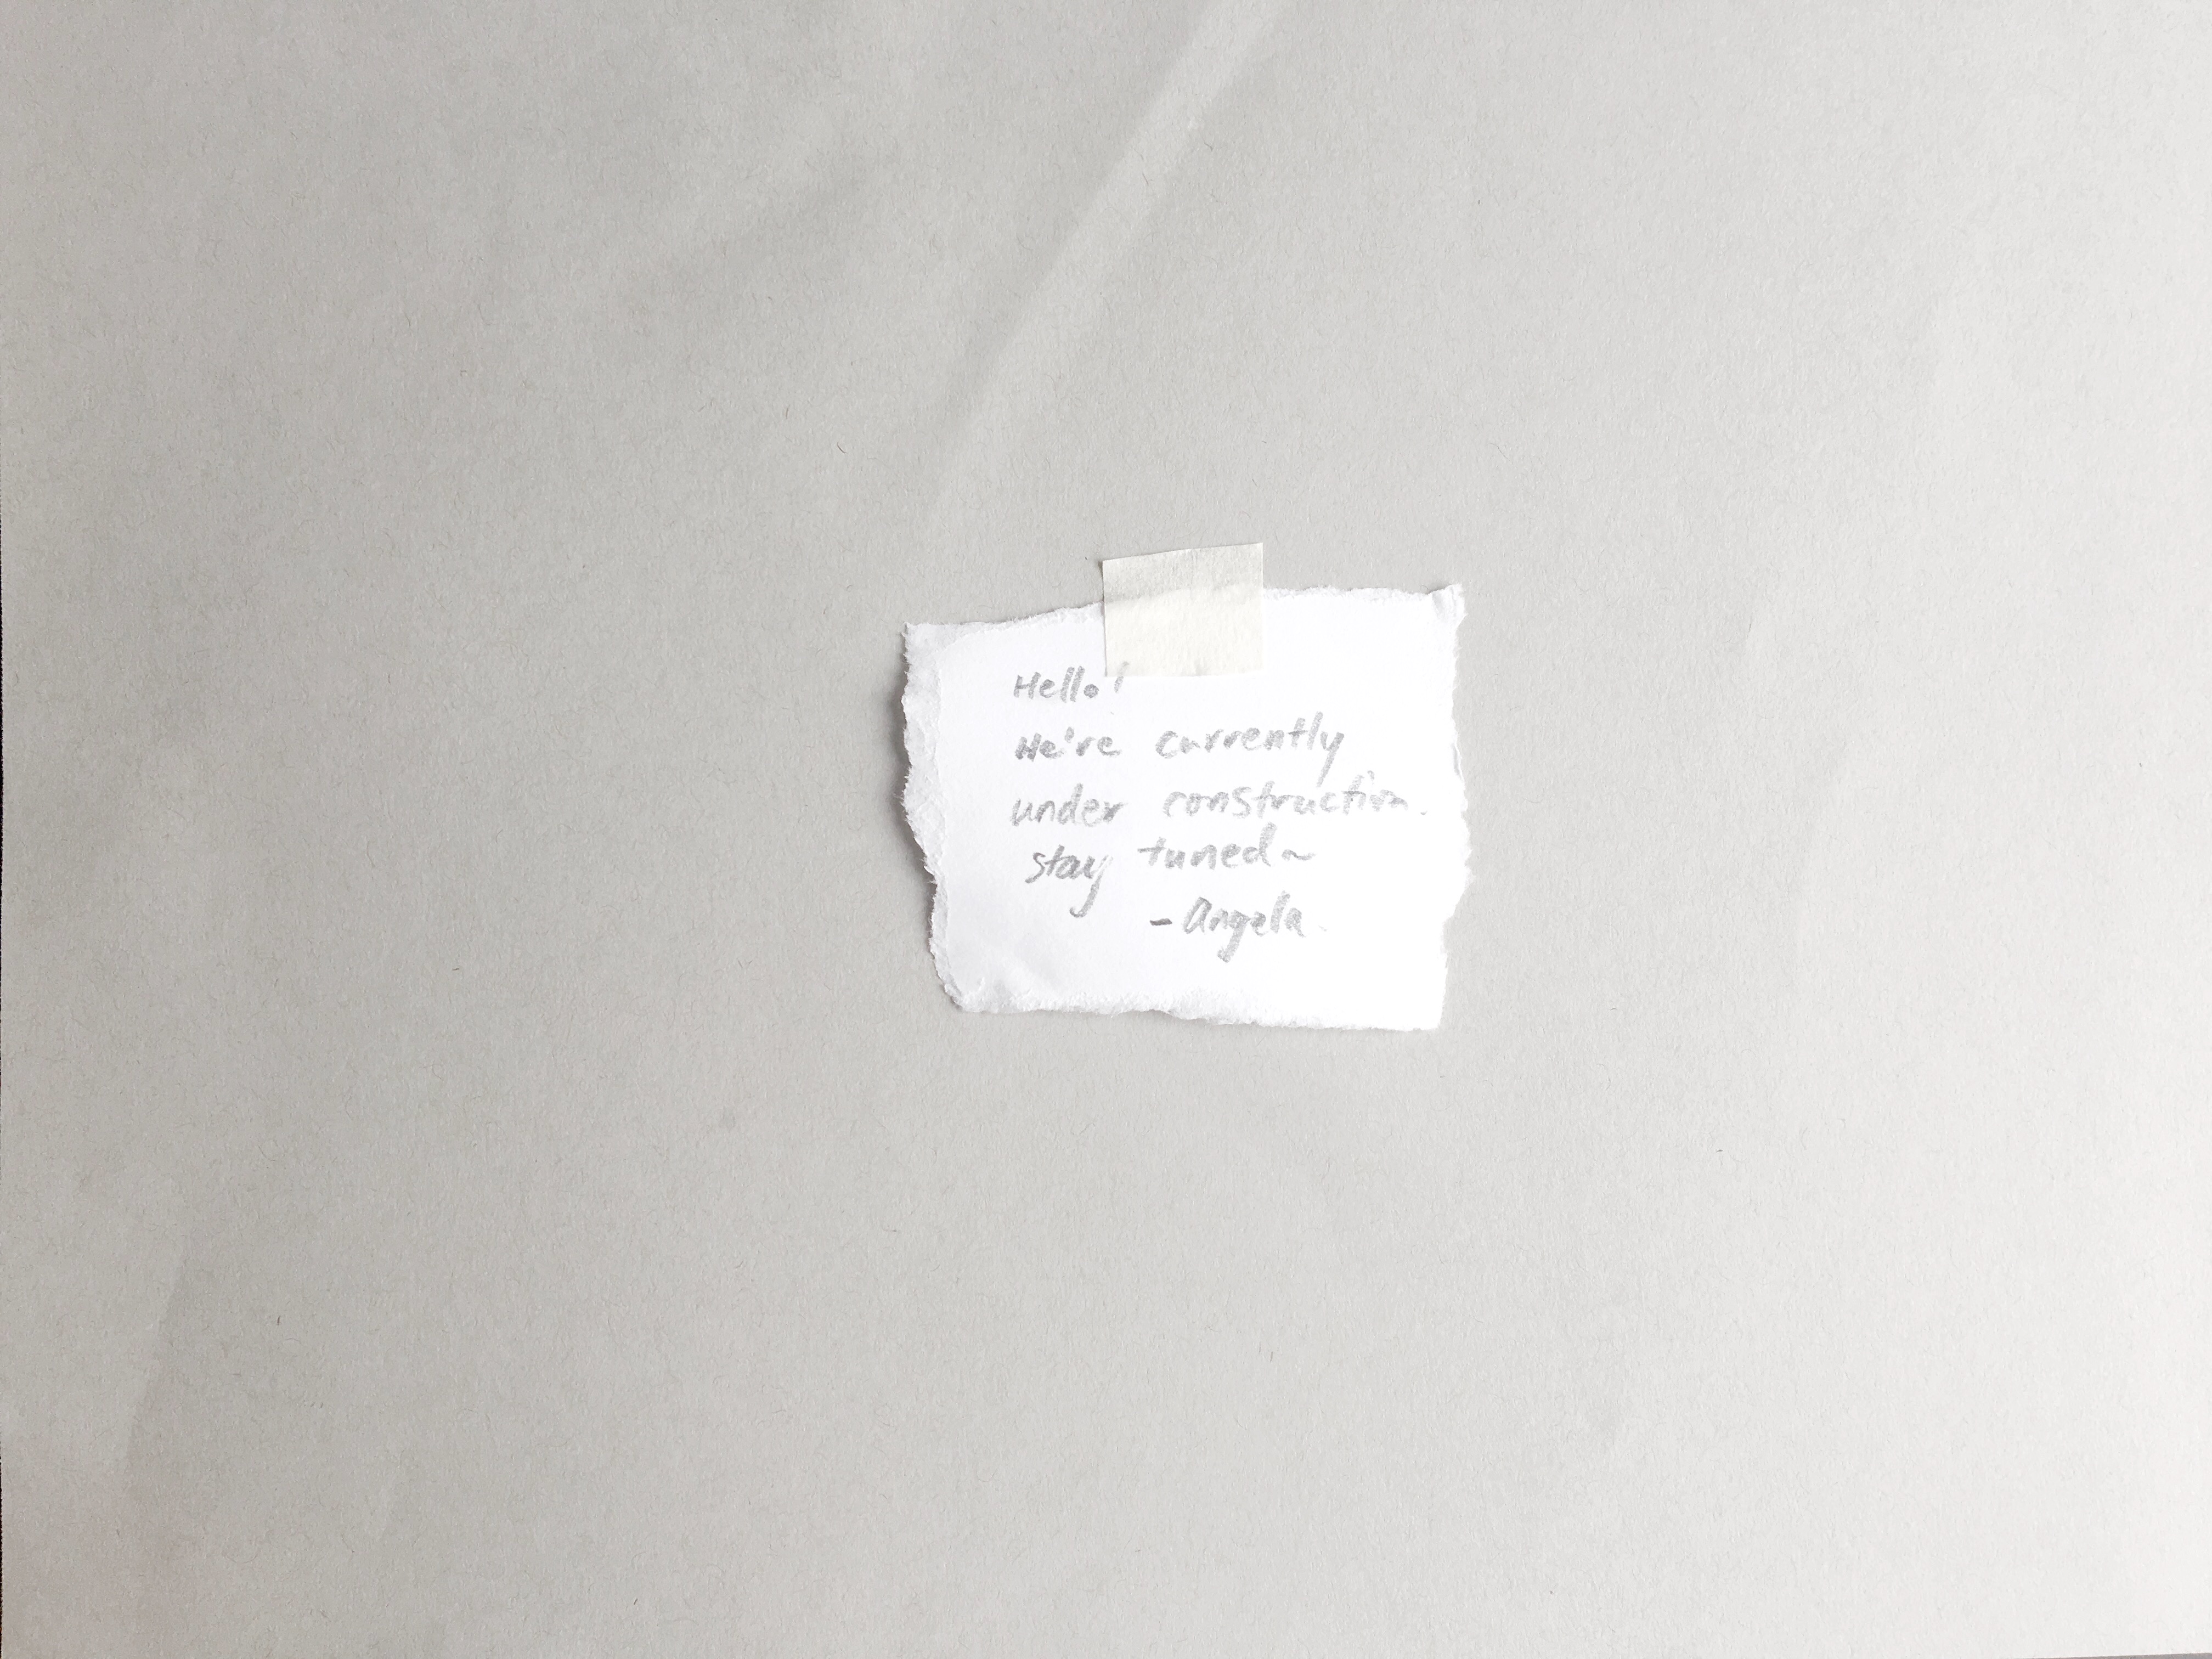 Hello!
We're currently
under construction.
stay tuned~
- Angela.